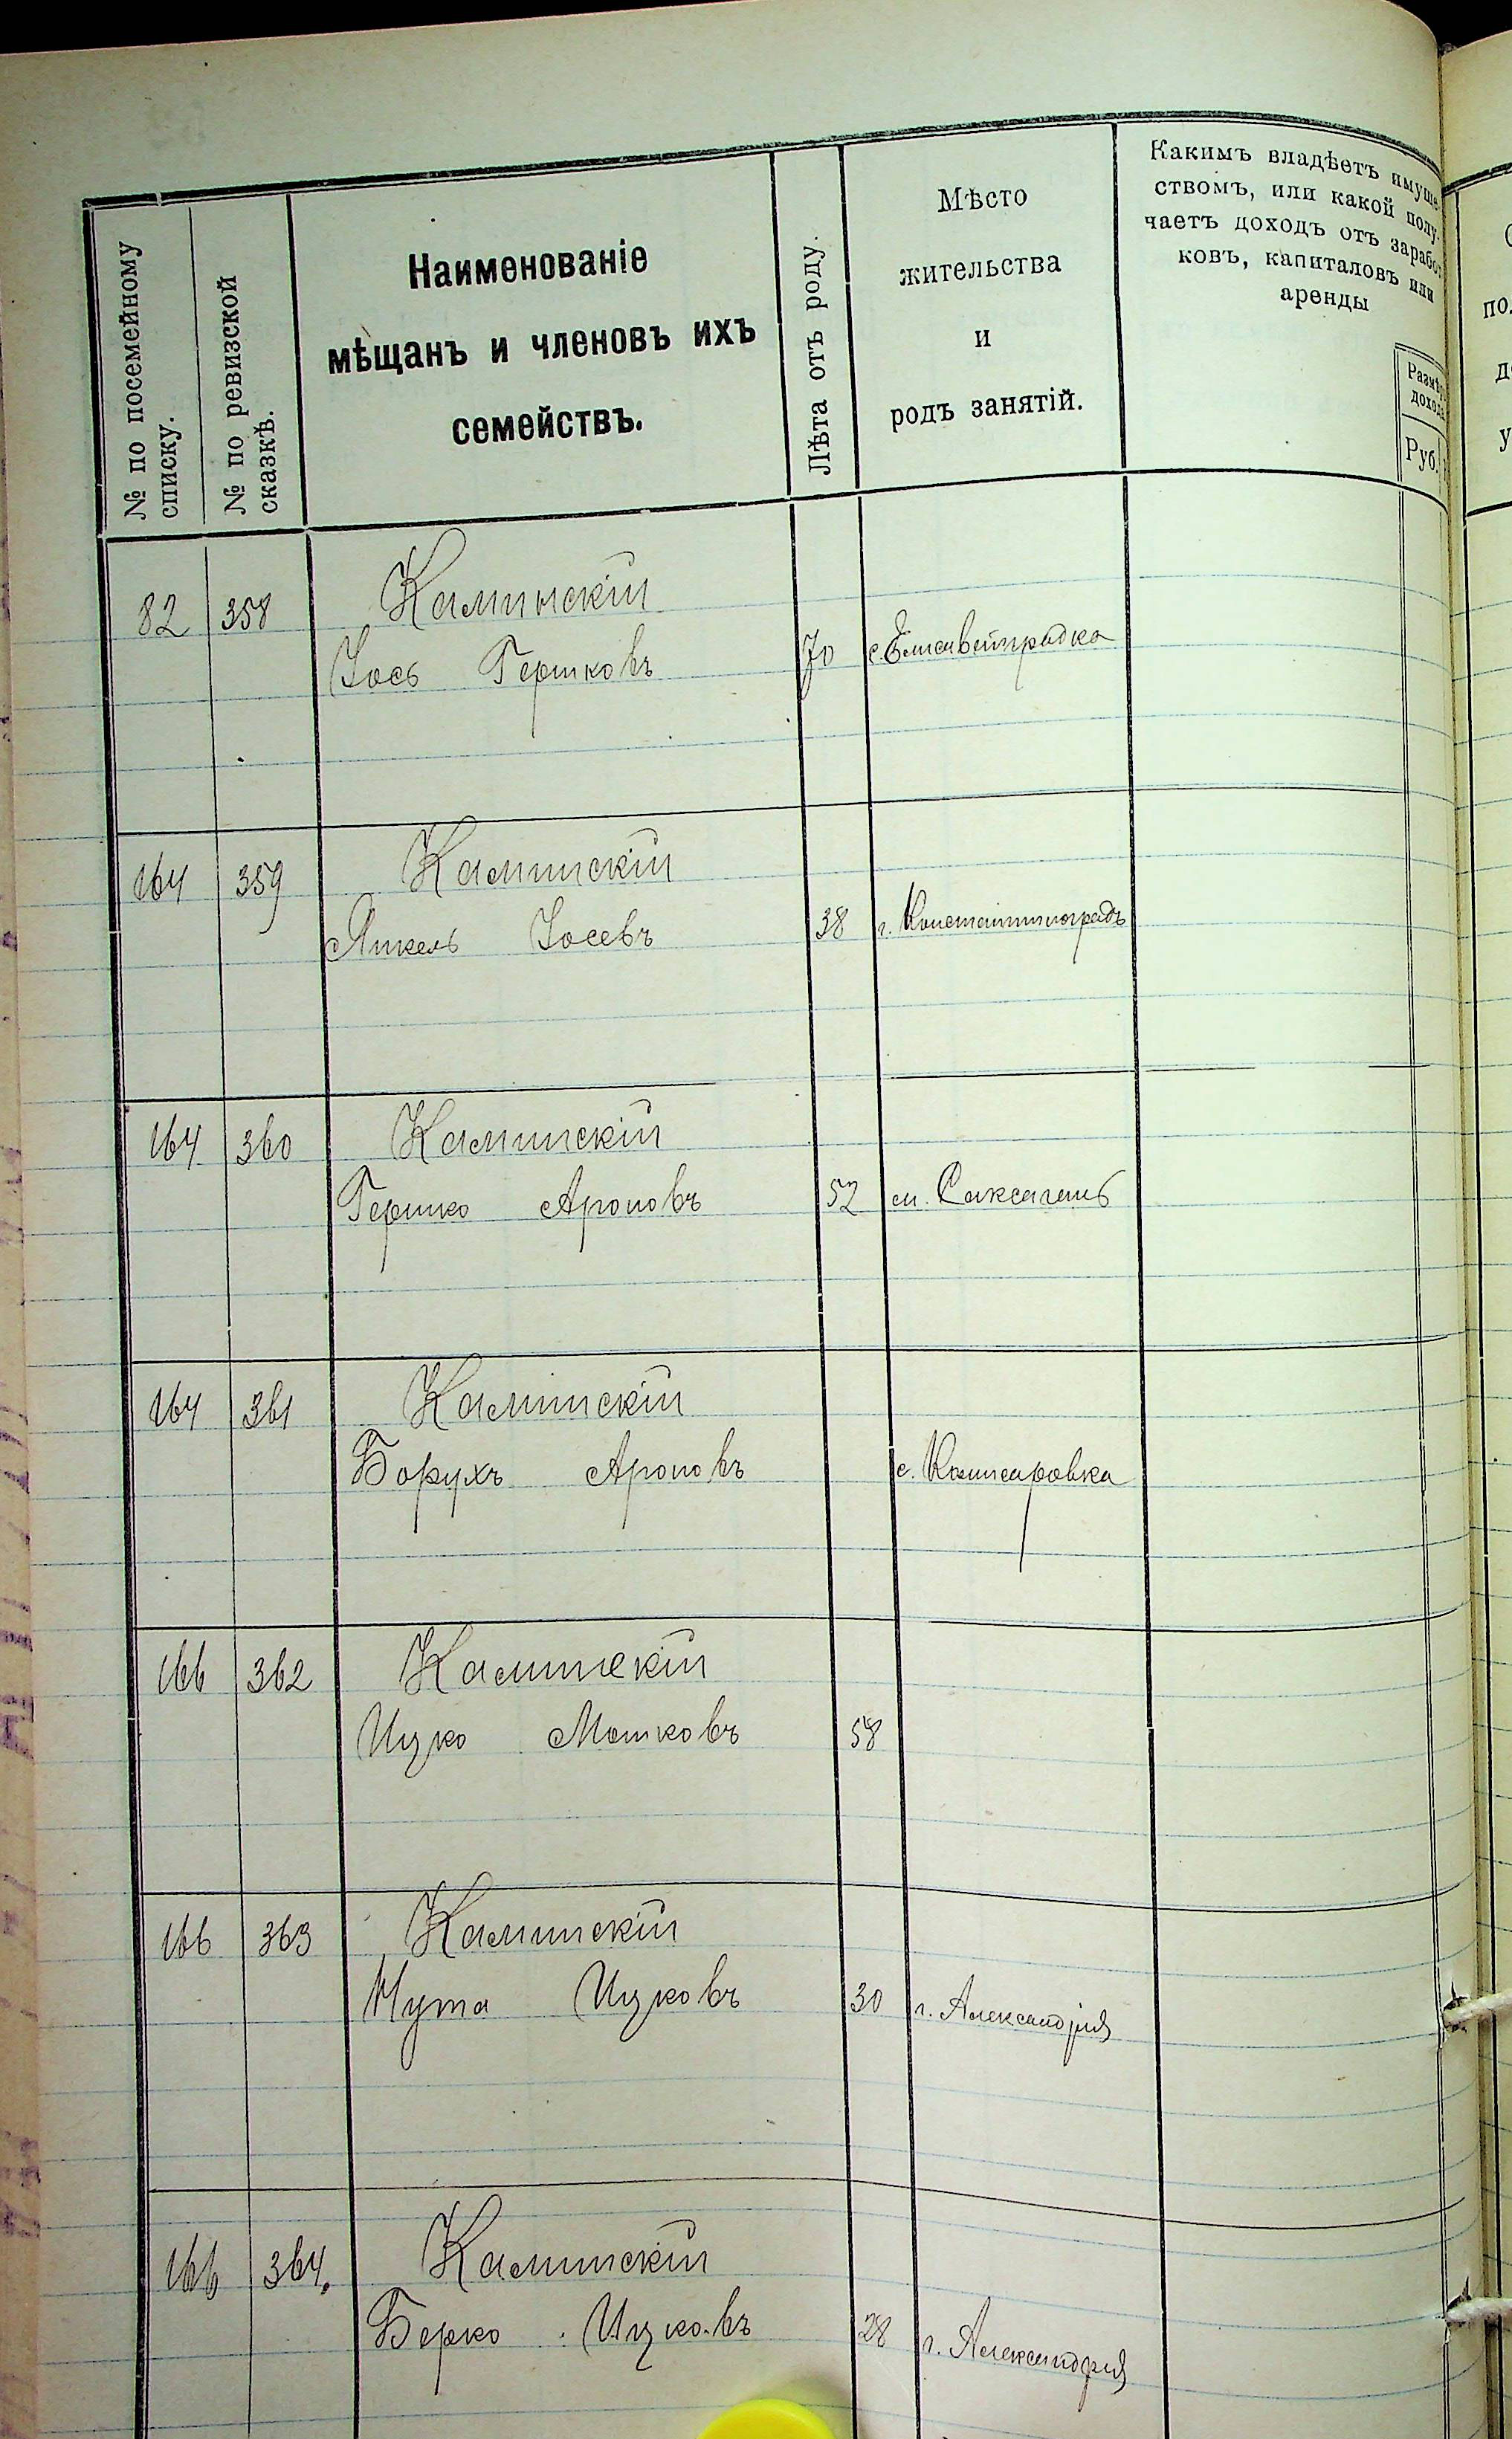 № по посемейному
списку.
№ по ревизской
сказкѣ.
Наименованіе
мѣщанъ и членовъ ихъ
семействъ.
Лѣта отъ роду.
Мѣсто
жительства
и
родъ занятій.
Какимъ владѣетъ имуще-
ствомъ, или какой полу-
чаетъ доходъ отъ заработ
ковъ, капиталовъ или
аренды
Размѣръ
дохода
Руб.
82 358 Каминскій
Іось Гершковъ 70 с. Елисаветградка
164 359 Каминскій
Янкель Іосевъ 38 г. Константиноградъ
164 360 Каминскій
Гершко Ароновъ 52 м. Саксагань
164 361 Каминскій
Борухъ Ароновъ с. Комисаровка
166 362 Каминскій
Ицко Мошковъ 58
166 363 Каминскій
Нута Ицковъ 30 г. Александрія
166 364. Каминскій
Берко Ицковъ 28 г. Александрія